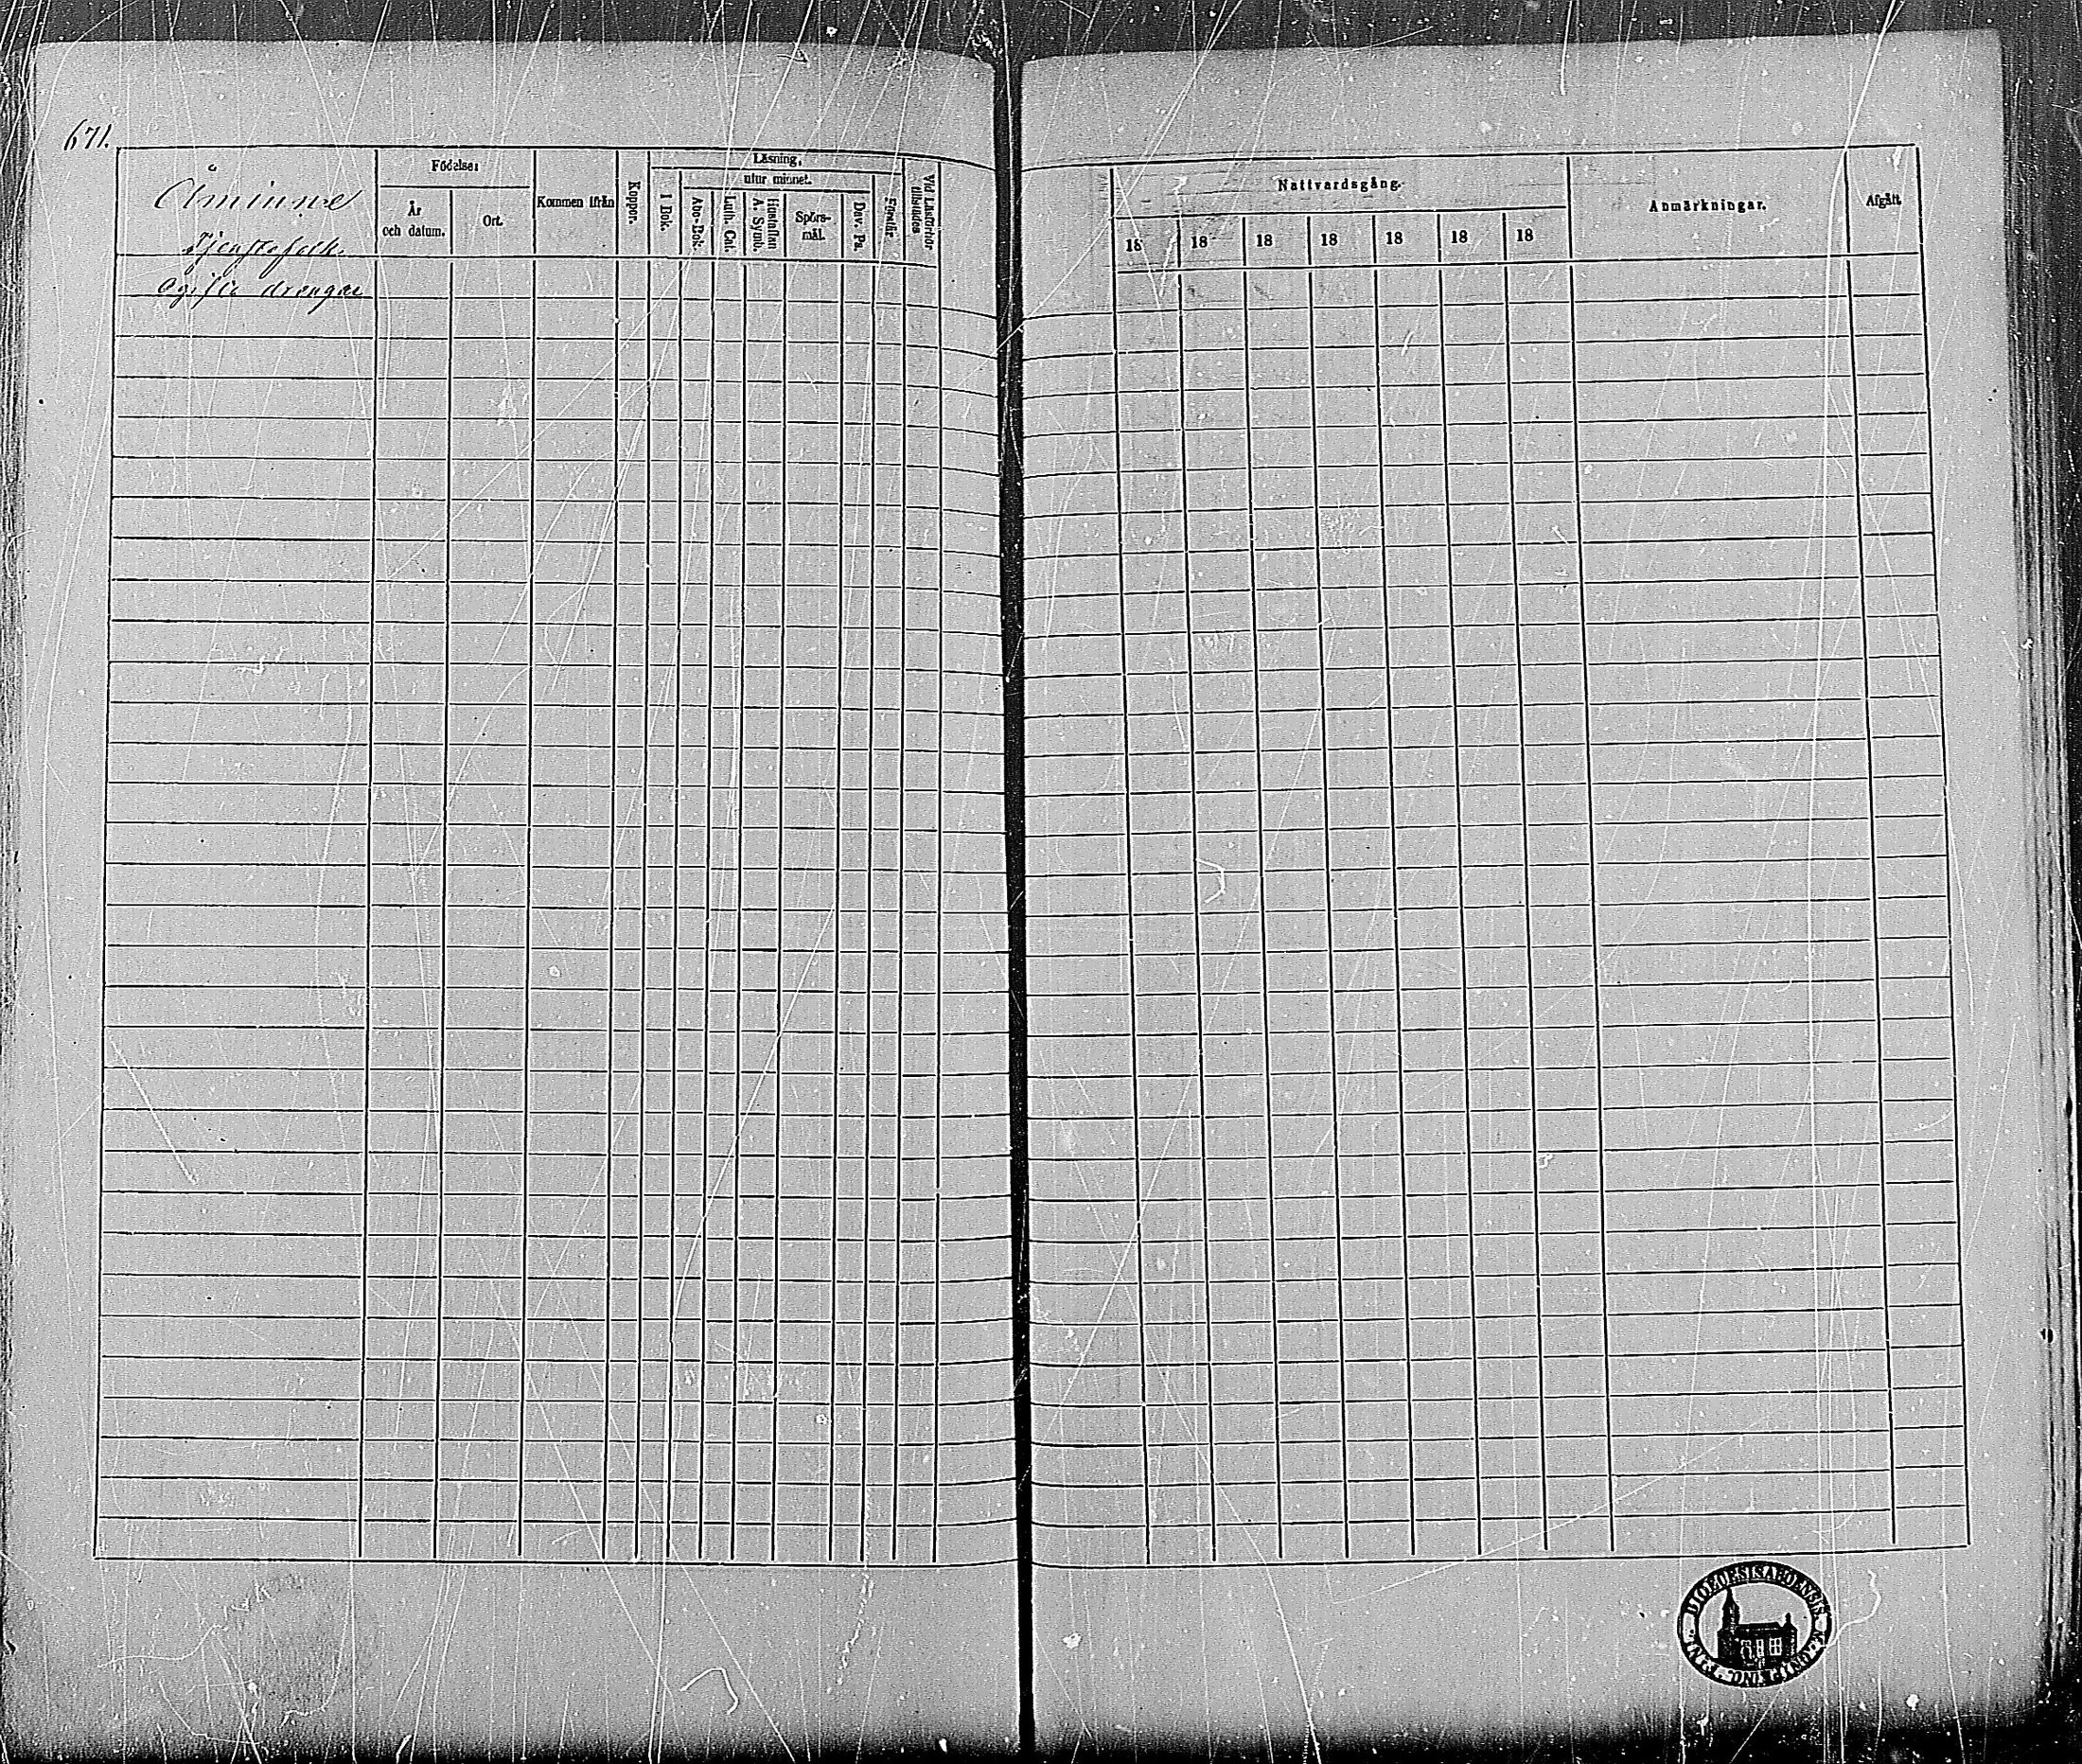 671.
Åminne
Tjenstefolk.
Ogifta drengar
Födelse:
År
och datum.
Ort.
Kommen ifrån
Koppor.
Läsning,
utur minnet.
I Bok.
Abc-Bok.
Luth. Cat.
Hustaflan
A. Symb.
Spörs-
mål.
Dav. Ps.
Vid Läsförhör
tillstädes
Nattvardsgång.
18
18
18
18
18
18
18
Anmärkningar.
Afgått.